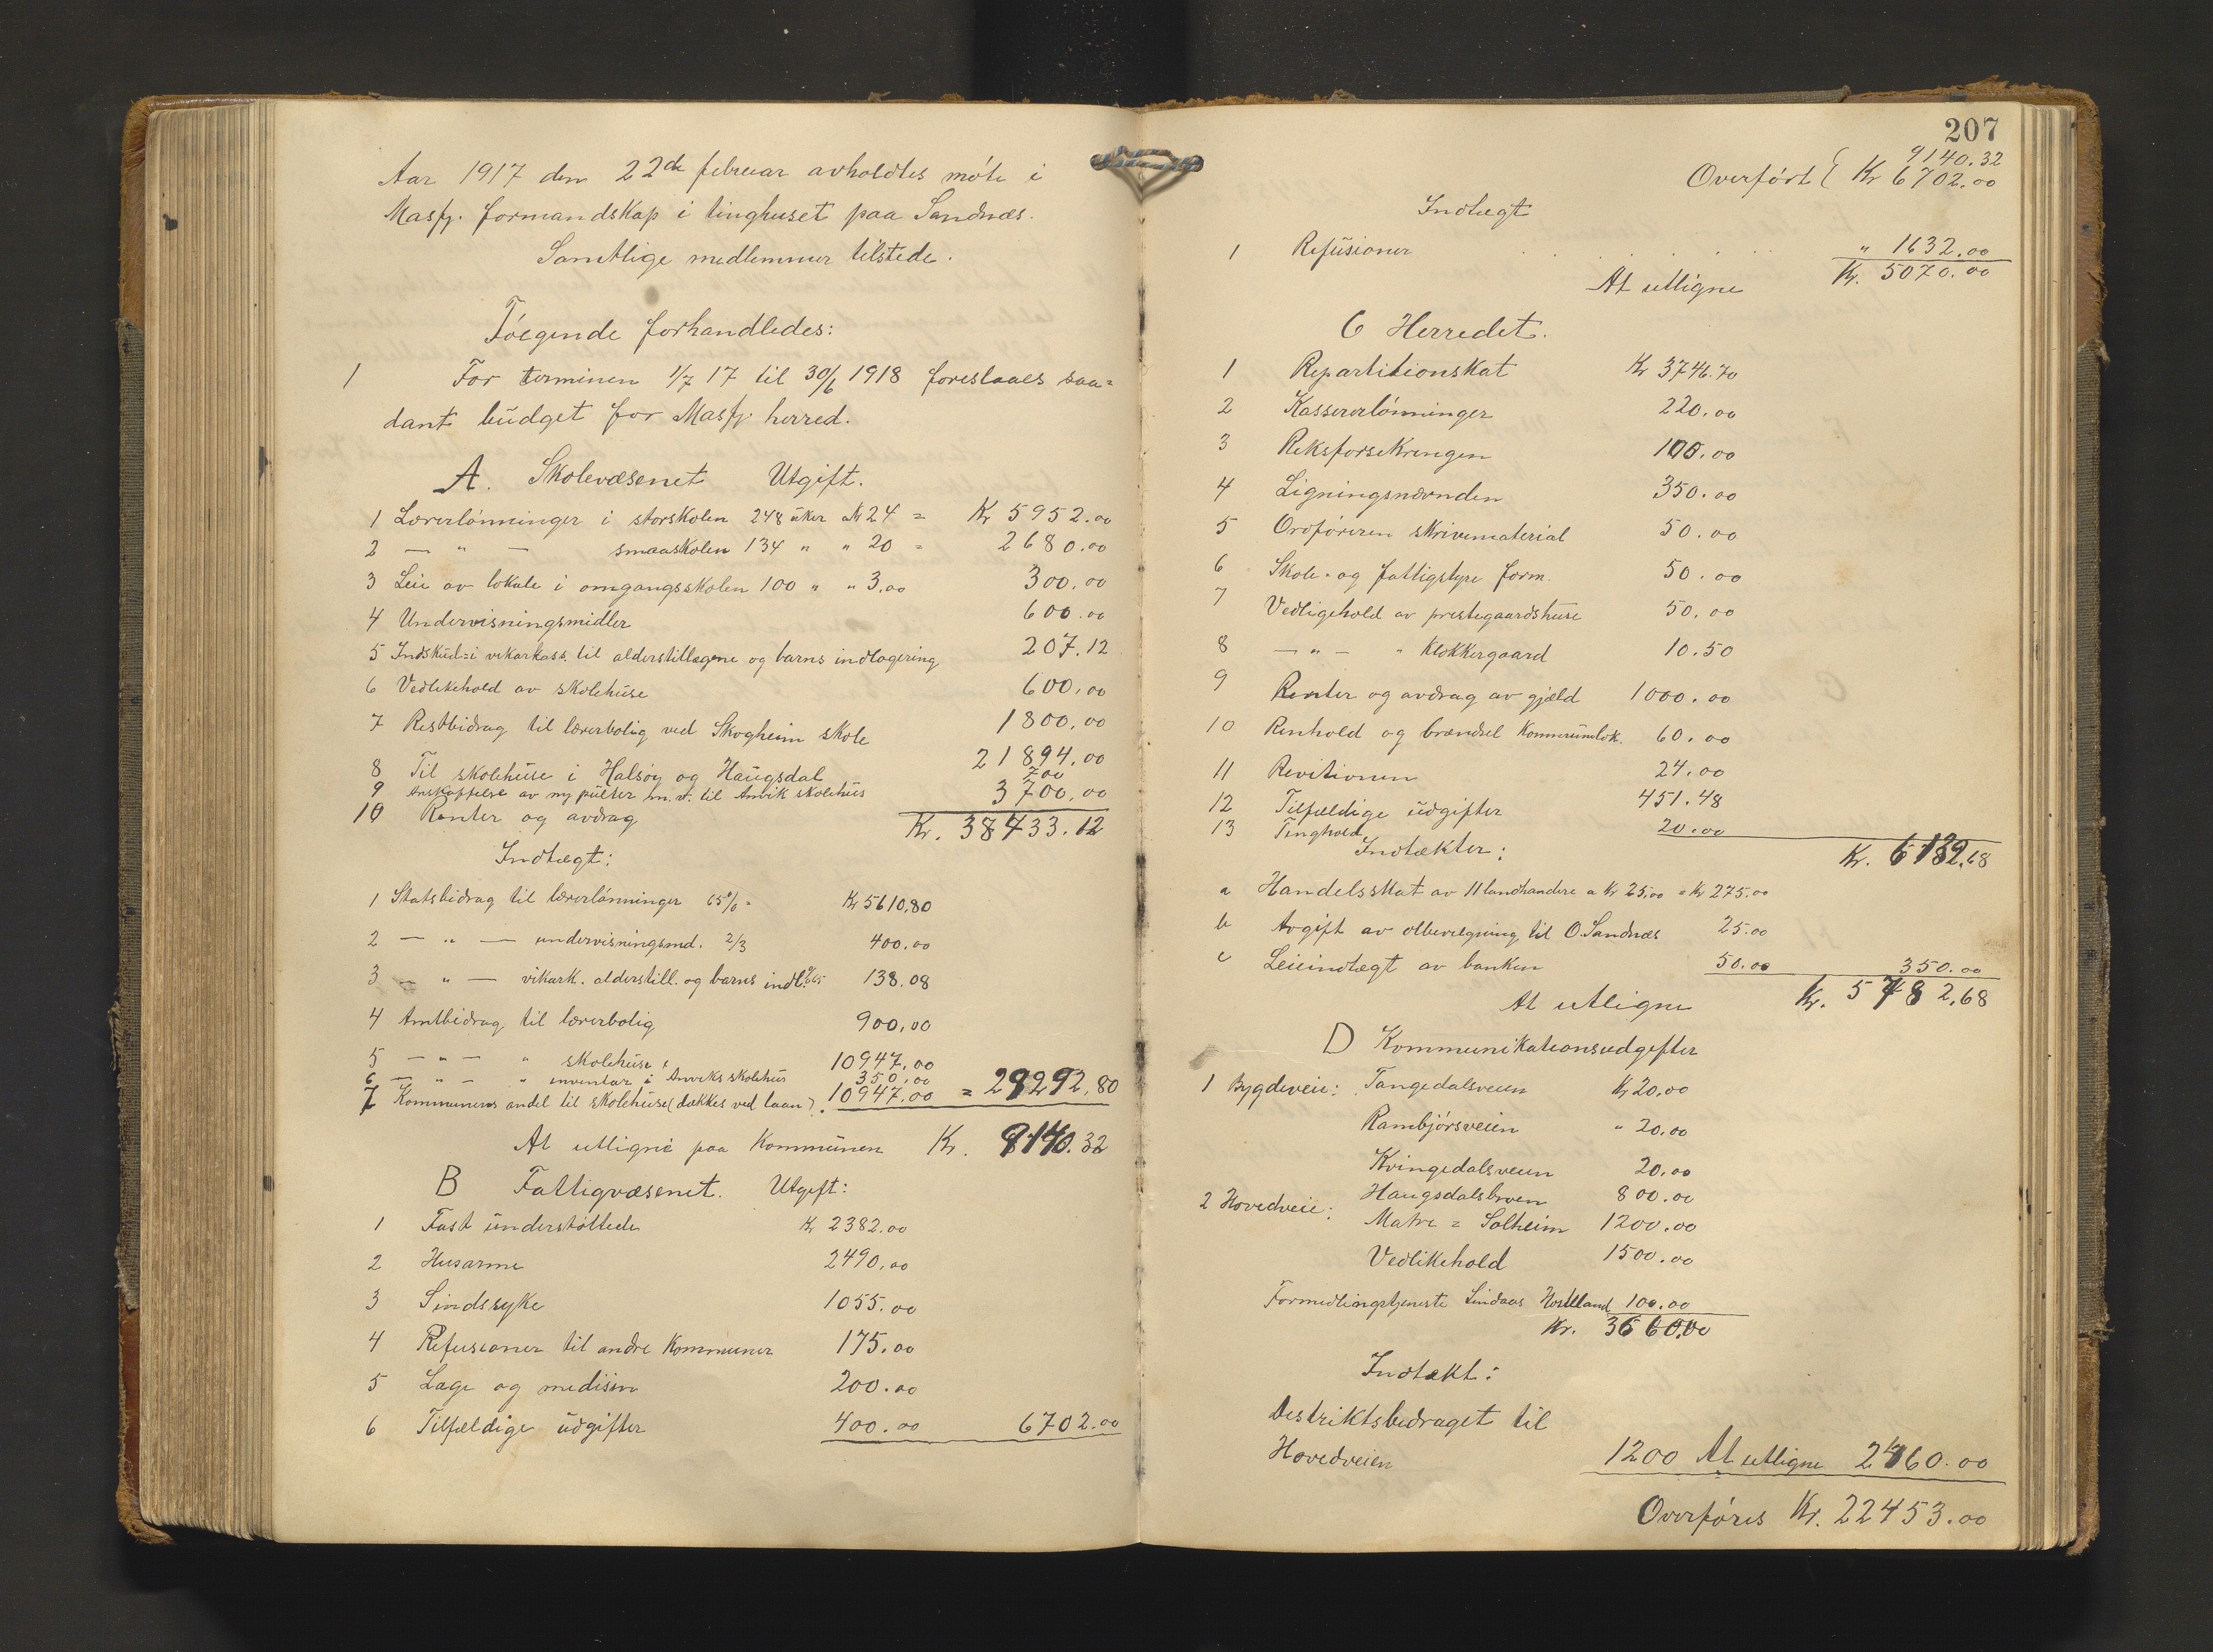 Aar 1917 den 22de februar avholdtes møte i
Masfj. formandskap i tinghuset paa Sandnæs.
Samtlige medlemmer tilstede.
Føegende forhandledes:
1 For terminen 1/7 17 til 30/6 1918 foreslaaes saa=
dant budget for Masfj. herred.
A. Skolevæsenet Utgift.
1 Lærerlønninger i storskolen 248 uker a Kr 24 = Kr 5952.00
2 — " — smaaskolen 134 " " 20 = 2680.00
3 Leie av lokale i omgangsskolen 100 " " 3.00 300.00
4 Undervisningsmidler 600.00
5 Indskud i vikarkass. til alderstillægene og barns indlogering 207.12
6 Vedlikehold av skolehuse 600.00
7 Restbidrag til lærerbolig ved Skogheim skole 1800.00
8 Til skolehuse i Halsøy og Haugsdal 21894.00
9 Anskaffelse av ny pulter m.v. til Anvik skolehus 700
10 Renter og avdrag 3700.00
Kr. 38433.12
Indtægt:
1 Statsbidrag til lærerlønninger 65% = Kr 5610.80
2 — " — undervisningsmd. 2/3 400.00
3 — " — vikark. alderstill. og barns indl. 138.08
4 Amtbidrag til lærerbolig 900.00
5 — " — " skolehuse 10947.00
6 — " — " inventar i Anviks skolehus 350.00
7 Kommunens andel til skolehuse (dækkes ved laan). 10947.00 = 29292.80
At utligne paa Kommunen Kr. 9140.32
B Fattigvæsenet. Utgift:
1 Fast understøttede Kr 2382.00
2 Husarme 2490.00
3 Sindssyke 1055.00
4 Refusioner til andre Kommuner 175.00
5 Læge og medisin 200.00
6 Tilfældige udgifter 400.00 6702.00
207
9140.32
Overført { Kr 6702.00
Indtægt
1 Refusioner . . . . . . " 1632.00
At utligne Kr. 5070.00
C Herredet.
1 Repartitionskat Kr 3746.70
2 Kassererlønninger 220.00
3 Riksforsikringen 100.00
4 Ligningsnævnden 350.00
5 Ordføreren skrivematerial 50.00
6 Skole- og fattigstyre form. 50.00
7 Vedligehold av prestegaardshuse 50.00
8 — " — " Klokkergaard 10.50
9 Renter og avdrag av gjæld 1000.00
10 Renhold og brændsel Kommunelok. 60.00
11 Revitionen 24.00
12 Tilfældige udgifter 451.48
13 Tinghold 20.00
Kr. 6132.68
Indtækter:
a Handelsskat av 11 landhandlere a Kr 25.00 = Kr 275.00
b Avgift av ølbevilgning til O. Sandnæs 25.00
c Leieindtægt av banken 50.00 350.00
At utligne Kr. 5782.68
D Kommunikationsudgifter
1 Bygdeveie: Tangedalsveien Kr 20.00
Rambjørsveien " 20.00
Kvingedalsveien 20.00
2 Hovedveie: Haugsdalsbroen 800.00
Matre = Solheim 1200.00
Vedlikehold 1500.00
Formidlingstjeneste Lindaas Hosteland 100.00
Kr. 3660.00
Indtækt:
Destriktsbidraget til
Hovedveien 1200 At utligne 2460.00
Overføres Kr. 22453.00